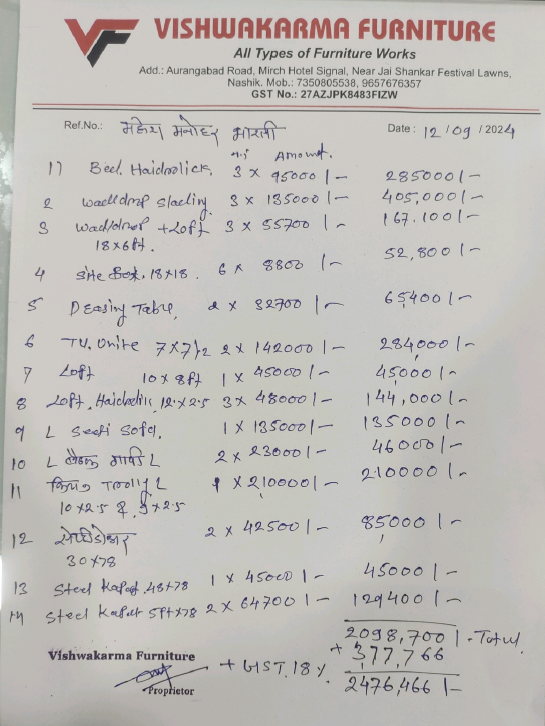 VF
VISHWAKARMA FURNITURE
All Types of Furniture Works
Add.: Aurangabad Road, Mirch Hotel Signal, Near Jai Shankar Festival Lawns,
Nashik. Mob.: 7350805538, 9657676357
GST No.: 27AZJPK8483FIZW
Ref.No.: महेश मनोहर भारती Date: 12/09/2024
Amount.
1) Bed. Haidrolick, 3 x 95000/- 285000/-
2 wadldrop slading. 3 x 135000/- 405,000/-
3 wad/drop +Loft 3 x 55700/- 167.100/-
18x6ft.
4 site Box, 18x18. 6 x 8800/- 52,800/-
5 Deasing Table, 2 x 32700/- 65400/-
6 TV. Unite 7x7½ 2 x 142000/- 284,000/-
7 Loft 10x8ft 1 x 45000/- 45000/-
8 Loft, Haidrolik, 12x2.5 3 x 48000/- 144,000/-
9 L Secti Sofa. 1 x 135000/- 135000/-
10 L 2 x 23000/- 46000/-
11 Trolly L 1 x 210000/- 210000/-
10x2.5 & 9x2.5
12 2 x 42500/- 85000/-
30x78
13 Steel Kapat 48x78 1 x 45000/- 45000/-
14 Steel Kapat 5ftx78 2 x 64700/- 129400/-
2098,700/- Total.
Vishwakarma Furniture + GST.18%. + 377,766
Proprietor 2476,466/-